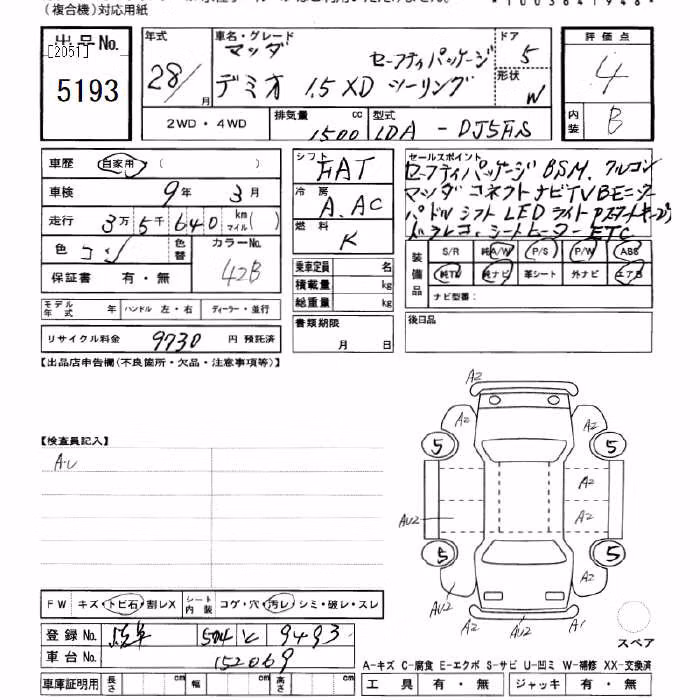 (複合機)対応用紙
*1003641948*
出品No.
[2051]
5193
年式
28/
月
車名・グレード
マツダ
セーフティパッケージ
デミオ 1.5 XD ツーリング
ドア
5
形状
W
評価点
4
内装
B
2WD・4WD
排気量
cc
1500
型式
LDA - DJ5FS
車歴
自家用 (          )
車検
9年 3月
走行
3万5千640 km マイル( )
色
コン
色替
カラーNo.
42B
保証書 有・無
モデル年式 年 ハンドル 左・右 ディーラー・並行
リサイクル料金 9730 円 預託済
シフト
FAT
冷房
A.AC
燃料
K
乗車定員 名
積載量 kg
総重量 kg
書類期限
月 日
セールスポイント
セーフティパッケージ BSM. クルコン
マツダコネクトナビTVBモニター
パドルシフト LEDライト Pスタートキーブ
ドラレコ. シートヒーター ETC
装備品
S/R 純A/W P/S P/W ABS
純TV 純ナビ 革シート 外ナビ エアB
ナビ型番:
後日品
【出品店申告欄(不良箇所・欠品・注意事項等)】
【検査員記入】
A・U
A2
A2
A2
5
5
A2
AU2
A2
5
5
AU2
A2
AU2
A1
スペア
FW キズ・トビ石・割レX シート内装 コゲ・穴・汚レ・シミ・破レ・スレ
登録No. 504 と 9493
車台No. 152069
車庫証明用 長さ cm 幅 cm 高さ cm
A-キズ C-腐食 E-エクボ S-サビ U-凹ミ W-補修 XX-交換済
工具 有・無 ジャッキ 有・無